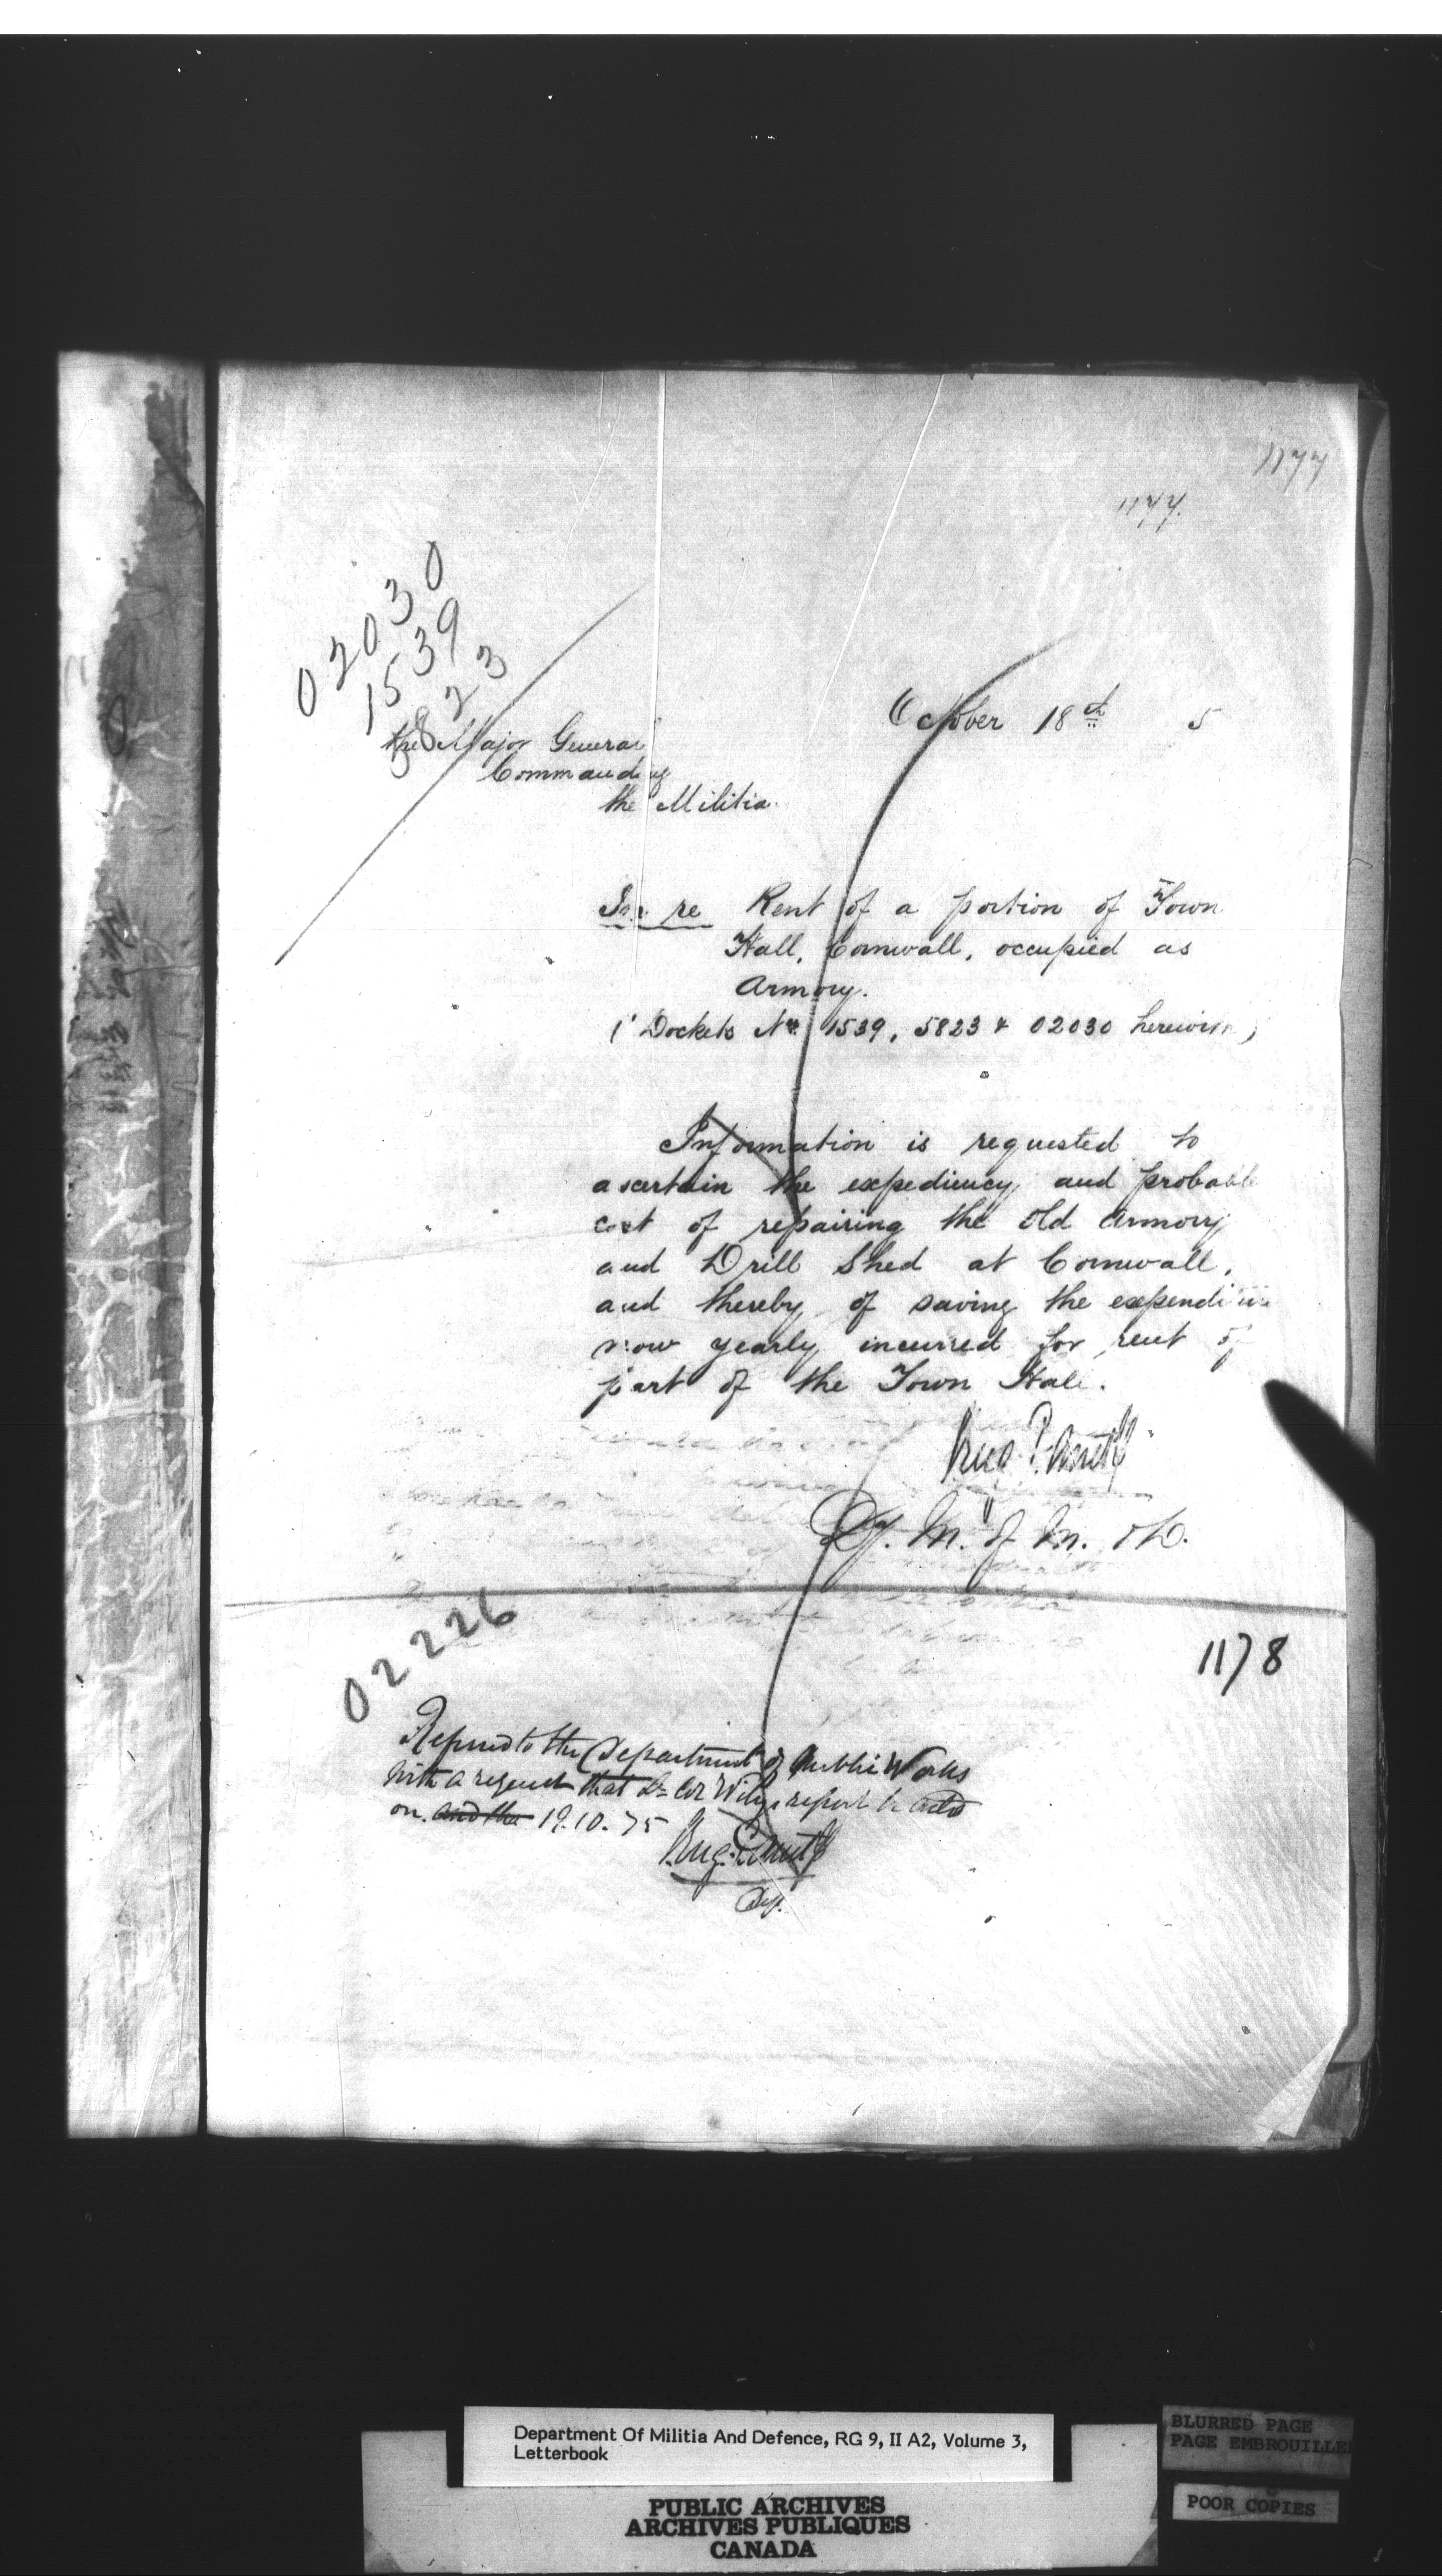 1177
1177.
02030
1539
5823
October 18th 5
The Major General
Commanding
the Militia.
In re Rent of a portion of Town
Hall, Cornwall, occupied as
Armory.
(Dockets Nos 1539, 5823 & 02030 herewith)
Information is requested to
ascertain the expediency and probable
cost of repairing the old Armory
and Drill Shed at Cornwall,
and thereby of saving the expenditure
now yearly incurred for rent of
part of the Town Hall.
Dy. M. of M. & D.
02226
1178
Referred to the Department of Public Works
with a request that Lt Col Wily's report be acted
on. and the 19.10.75
Dy.
Department Of Militia And Defence, RG 9, II A2, Volume 3,
Letterbook
BLURRED PAGE
PAGE EMBROUILLEE
POOR COPIES
PUBLIC ARCHIVES
ARCHIVES PUBLIQUES
CANADA